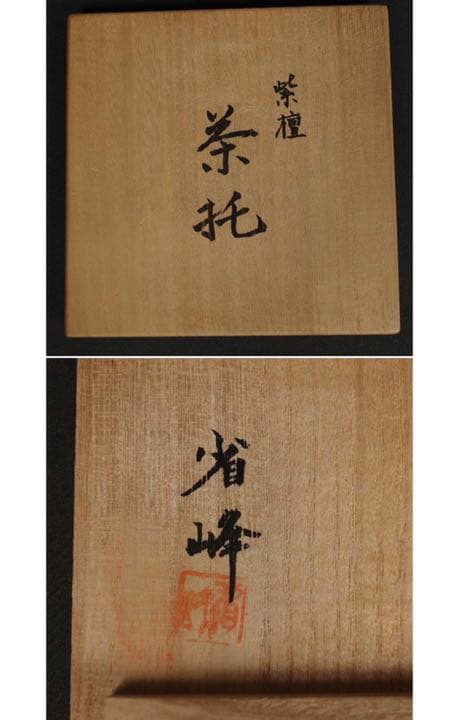 紫檀
茶托
省峰